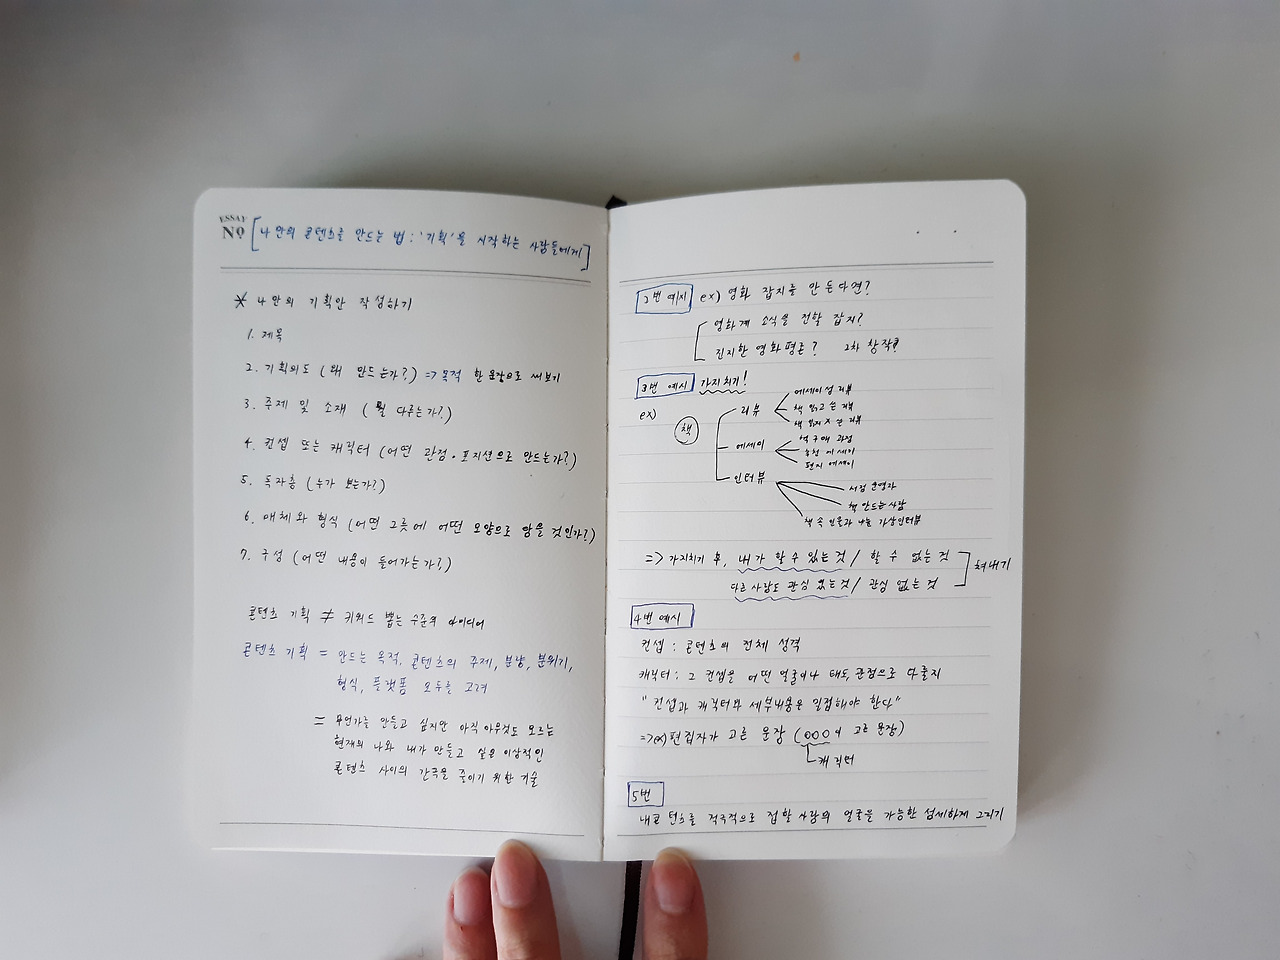 ESSAY
No
[나만의 콘텐츠를 만드는 법 : '기획'을 시작하는 사람들에게]
* 나만의 기획안 작성하기
1. 제목
2. 기획의도 (왜 만드는가?) => 목적 한 문장으로 써보기
3. 주제 및 소재 (뭘 다루는가?)
4. 컨셉 또는 캐릭터 (어떤 관점·포지션으로 만드는가?)
5. 독자층 (누가 보는가?)
6. 매체와 형식 (어떤 그릇에 어떤 모양으로 담을 것인가?)
7. 구성 (어떤 내용이 들어가는가?)
콘텐츠 기획 ≠ 키워드 뽑는 수준의 아이디어
콘텐츠 기획 = 만드는 목적, 콘텐츠의 주제, 분량, 분위기,
형식, 플랫폼 모두를 고려
= 무언가를 만들고 싶지만 아직 아무것도 모르는
현재의 나와 내가 만들고 싶은 이상적인
콘텐츠 사이의 간극을 줄이기 위한 기술
2번 예시 ex) 영화 잡지를 만든다면?
영화계 소식을 전할 잡지?
진지한 영화평론? 2차 창작?
3번 예시 가지치기!
ex)
책
리뷰
에세이성 리뷰
책 읽고 쓴 리뷰
책 읽지 X 쓴 리뷰
에세이
책 구매 과정
추천 에세이
편지 에세이
인터뷰
서점 운영자
책 만드는 사람
책 속 인물과 나눈 가상인터뷰
=> 가지치기 후, 내가 할 수 있는 것 / 할 수 없는 것
다른 사람도 관심 있는 것 / 관심 없는 것
쳐내기
4번 예시
컨셉 : 콘텐츠의 전체 성격
캐릭터 : 그 컨셉을 어떤 얼굴이나 태도, 관점으로 다룰지
"컨셉과 캐릭터와 세부내용은 일접해야 한다"
=> ex) 편집자가 고른 문장 (OOO이 고른 문장)
캐릭터
5번
내 콘텐츠를 적극적으로 접할 사람의 얼굴을 가능한 섬세하게 그리기